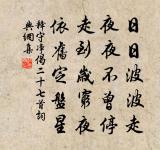 日日波波走
夜夜不曾停
走到歲窮夜
依舊定盤星
釋守淨偈二十七首詞
典網集